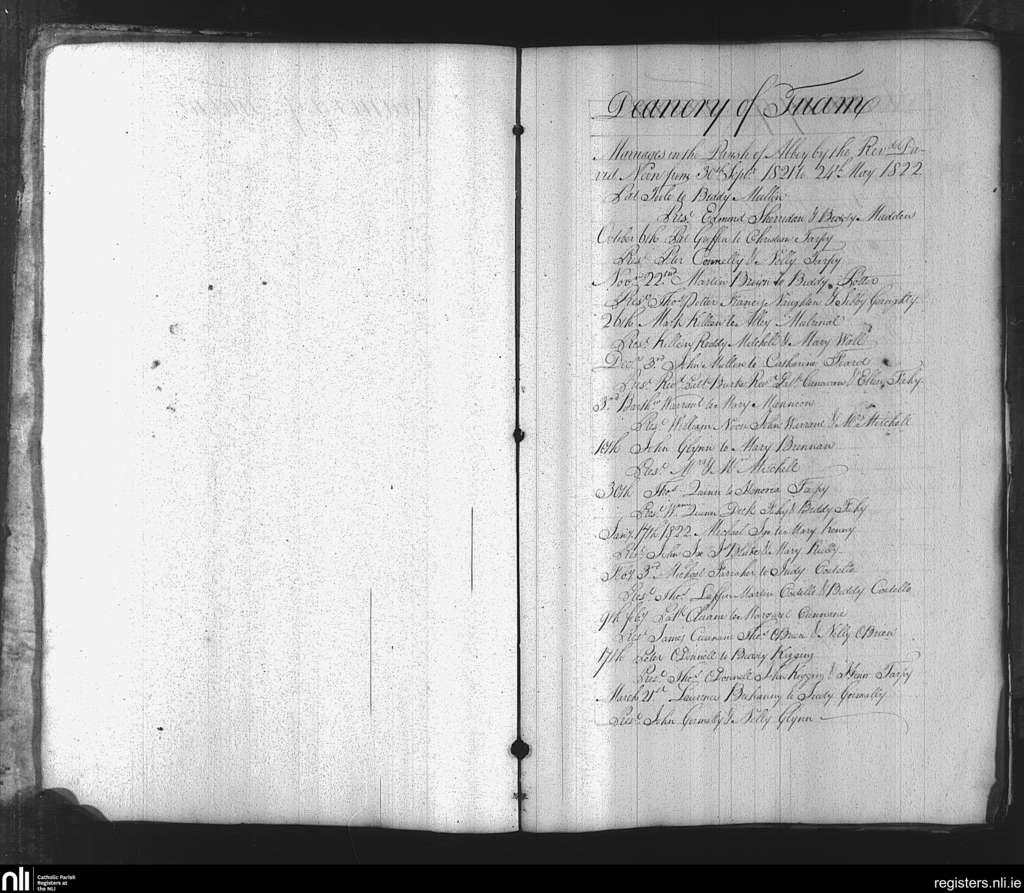 Deanery of Tuam
Marriages in the Parish of Abbey by the Revd. Da-
vid Noon from 30th Sept. 1821 to 24th May 1822
Pat to Biddy Mullin
Prest. Edmond Sherridan & Biddy Madden
October 6th Pat Griffin to Christian Tarpy
Prest. Peter Connelly & Nelly Tarpy
Novr. 22nd Martin Brown to Biddy Potter
Prest. Thos. Potter Francis Naughten & Sibby Geraghty
26th Mark Killeen to Abby Mulrenal
Prest. Killeen Roddy Mitchell & Mary Wall
Decr. 3rd John Mullen to Catharine
Prest. Revd. Burke Revd. Patk. Canavan & Ellen Fahy
3rd Barthw. Warrant to Mary Mannion
Prest. William Noon John Warrant & Mrs. Mitchell
16th John Glynn to Mary Brennan
Prest. Mr. & Mrs. Mitchell
30th Thos. Quinn to Honorea Tarpy
Prest. Wm. Quinn Fahy & Biddy Fahy
Jany. 17th 1822 Michael to Mary Kenny
Prest. John & Mary Reilly
Feby. 3rd Michael Farraher to Judy Costello
Prest. Thos. Laffin Martin Costello & Biddy Costello
9th Feby. Patk. to Margaret Cunnane
Prest. James Cunnane Thos. OBrien & Nelly OBrien
17th Peter ODonnell to Biddy Higgins
Prest. Thos. ODonnell John Higgins & Tarpy
March 21st Laurence to Judy Gormally
Prest. John Gormally & Nelly Glynn
nli
Catholic Parish
Registers at
the NLI
registers.nli.ie